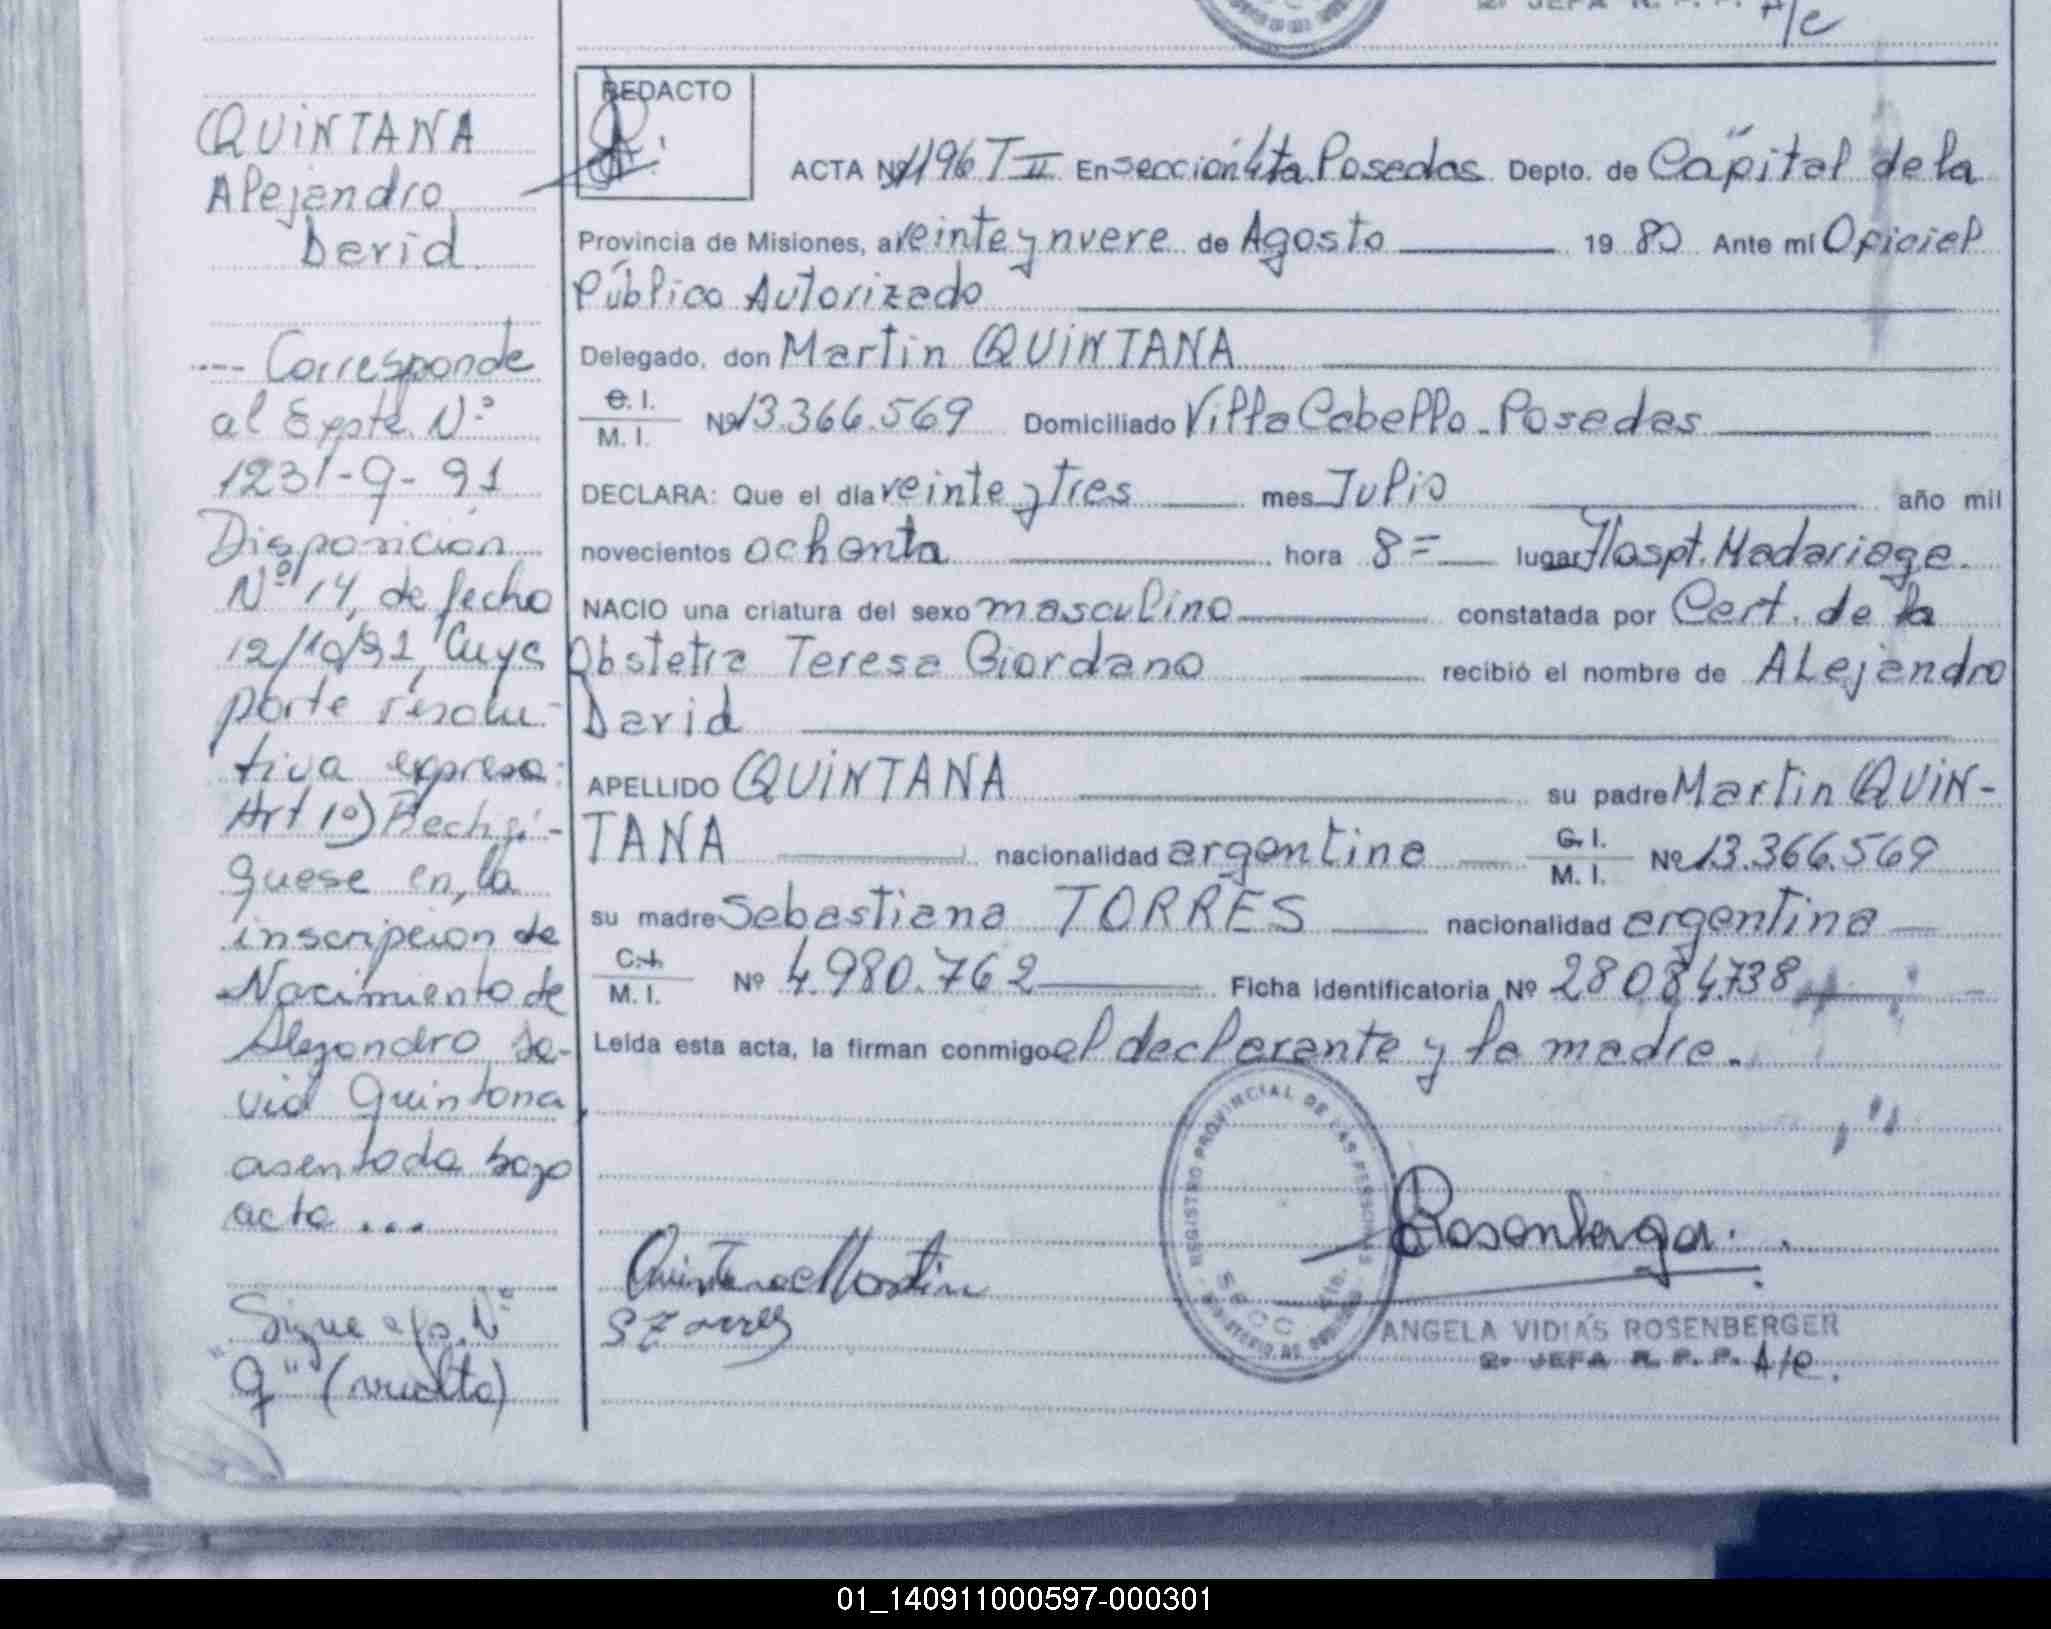 2º JEFA R. P. P. A/c
QUINTANA
Alejandro
David
---- Corresponde
al Expte. Nº
1231-9-91
Disposición
Nº 14, de fecha
12/10/91, Cuya
parte resolu-
tiva expresa:
Art 1º) Rectifí-
quese en la
inscripción de
Nacimiento de
Alejandro Da-
vid Quintana
asentada bajo
acta ...
Sigue a fs. Nº
"9" (vuelta)
REDACTO
ACTA Nº 1196 T II En Sección 4ta. Posadas Depto. de Capital de la
Provincia de Misiones, a veinte y nueve de Agosto 19 80 Ante mí Oficial
Público Autorizado
Delegado, don Martin QUINTANA
C. I.
M. I. Nº 13.366.569 Domiciliado Villa Cabello - Posadas
DECLARA: Que el día veinte y tres mes Julio año mil
novecientos ochenta hora 8= lugar Hospt. Madariaga.
NACIO una criatura del sexo masculino constatada por Cert. de la
Obstetra Teresa Giordano recibió el nombre de ALejandro
David
APELLIDO QUINTANA su padre Martin QUIN-
TANA nacionalidad argentina C. I. M. I. Nº 13.366.569
su madre Sebastiana TORRES nacionalidad argentina
C. I.
M. I. Nº 4.980.762 Ficha identificatoria Nº 28084.738
Leída esta acta, la firman conmigo el declarante y la madre.
REGISTRO PROVINCIAL DE LAS PERSONAS
MINISTERIO DE GOBIERNO
SECC. 4ta.
Quintana Martin
S Torres
Rosenberger
ANGELA VIDIAS ROSENBERGER
2º JEFA R. P. P. A/c.
01_140911000597-000301